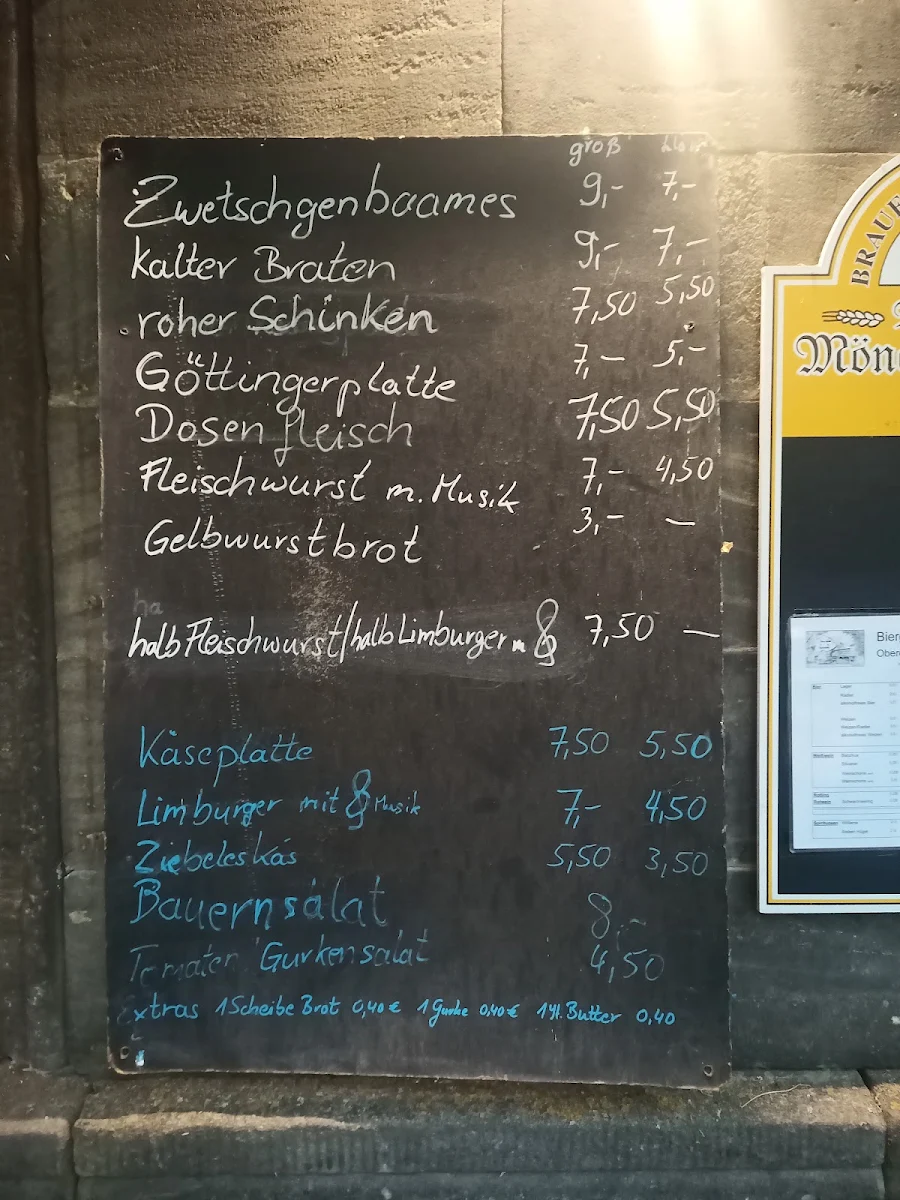 groß klein
Zwetschgenbaames 9,- 7,-
kalter Braten 9,- 7,-
roher Schinken 7,50 5,50
Göttingerplatte 7,- 5,-
Dosenfleisch 7,50 5,50
Fleischwurst m. Musik 7,- 4,50
Gelbwurstbrot 3,- —
ha
halb Fleischwurst/halb Limburger m. 7,50 —
Käseplatte 7,50 5,50
Limburger mit Musik 7,- 4,50
Ziebeleskäs 5,50 3,50
Bauernsalat 8,-
Tomaten Gurkensalat 4,50
Extras 1 Scheibe Brot 0,40€ 1 Gurke 0,40€ 1 Butter 0,40
BRAUE
Mön
Bier
Ober